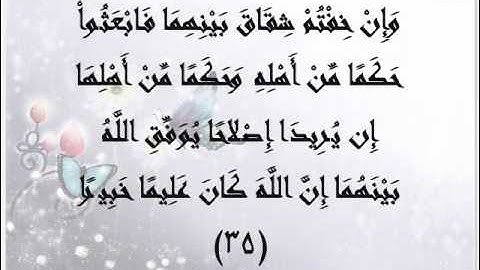 وَإِنْ خِفْتُمْ شِقَاقَ بَيْنِهِمَا فَابْعَثُواْ
حَكَمًا مِّنْ أَهْلِهِ وَحَكَمًا مِّنْ أَهْلِهَا
إِن يُرِيدَا إِصْلاَحًا يُوَفِّقِ اللّهُ
بَيْنَهُمَا إِنَّ اللّهَ كَانَ عَلِيمًا خَبِيرًا
(٣٥)